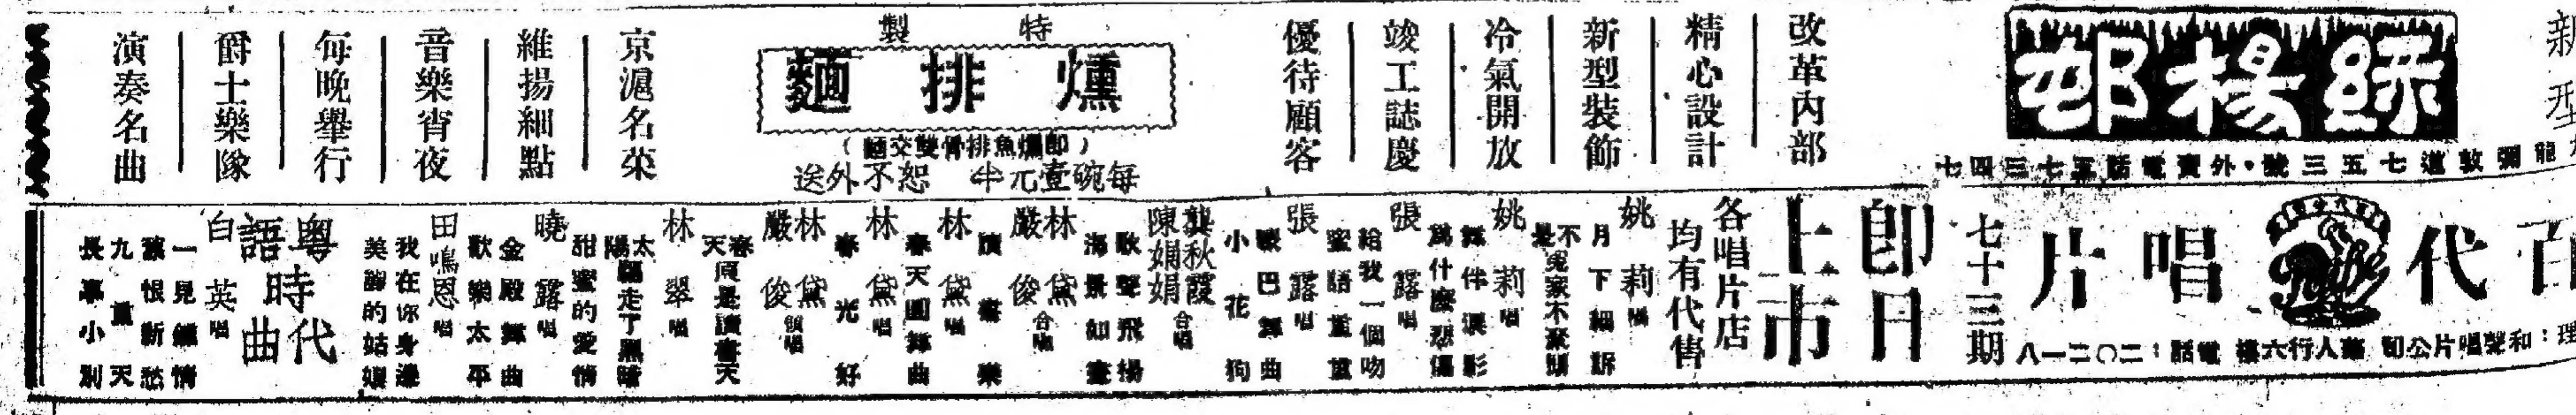 新型
綠楊邨
彌敦道七五三號·外賣電話五七三四七
改革內部
精心設計
新型裝飾
冷氣開放
竣工誌慶
優待顧客
特製
燻排麵
（即燻魚排骨雙交麵）
每碗壹元半 恕不外送
京滬名菜
維揚細點
音樂宵夜
每晚舉行
爵士樂隊
演奏名曲
百代唱片
理：和聲唱片公司 華人行六樓 電話：二〇二一八
七十三期
即日
上市
各唱片店
均有代售
姚莉唱
月下細訴
不是冤家不聚頭
姚莉唱
舞伴淚影
為什麼悲傷
張露唱
給我一個吻
蜜語重重
張露唱
巴舞曲
小花狗
龔秋霞
陳娟娟合唱
歌聲飛揚
海景如畫
林黛
嚴俊合唱
讀書樂
林黛唱
春天圓舞曲
林黛唱
春光好
林黛
嚴俊領唱
春天原是讀書天
林翠唱
太陽驅走了黑暗
甜蜜的愛情
曉露唱
金殿舞曲
歡樂太平
田鳴恩唱
我在你身邊
美麗的姑娘
粵語時代曲
白英唱
一見鍾情
舊恨新愁
九重天
長亭小別